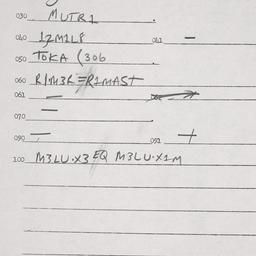 030 MUTR1
040 1ZM1L8 041 —
050 TOKA (306
060 R1M3R=R1MAST
061 —
070 —
090 — 091 +
100 M3LU·X3 EQ M3LU·X1M